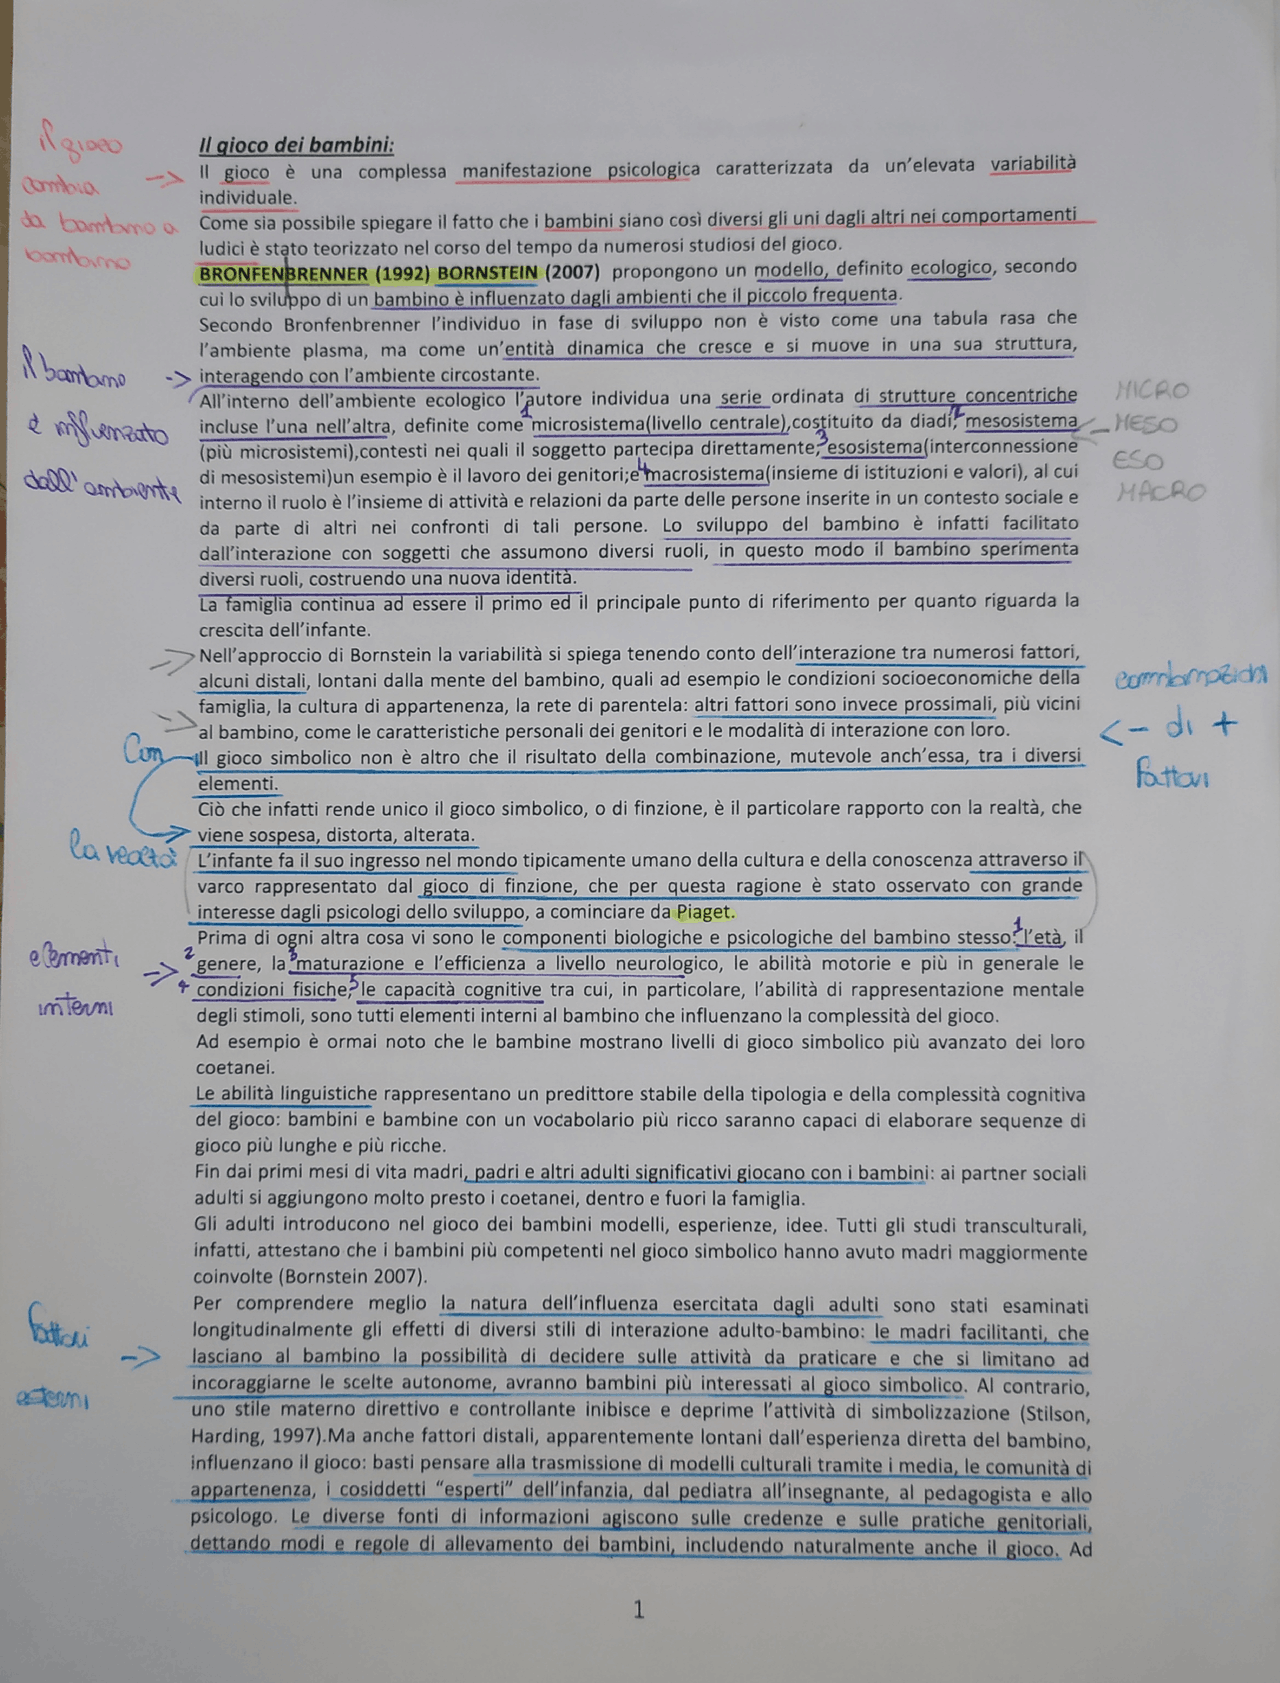 Il gioco dei bambini:
il gioco
cambia
da bambino a
bambino
Il gioco è una complessa manifestazione psicologica caratterizzata da un'elevata variabilità
individuale.
Come sia possibile spiegare il fatto che i bambini siano così diversi gli uni dagli altri nei comportamenti
ludici è stato teorizzato nel corso del tempo da numerosi studiosi del gioco.
BRONFENBRENNER (1992) BORNSTEIN (2007) propongono un modello, definito ecologico, secondo
cui lo sviluppo di un bambino è influenzato dagli ambienti che il piccolo frequenta.
Secondo Bronfenbrenner l'individuo in fase di sviluppo non è visto come una tabula rasa che
l'ambiente plasma, ma come un'entità dinamica che cresce e si muove in una sua struttura,
interagendo con l'ambiente circostante.
il bambino
è influenzato
dall'ambiente
All'interno dell'ambiente ecologico l'autore individua una serie ordinata di strutture concentriche
incluse l'una nell'altra, definite come 1 microsistema(livello centrale),costituito da diadi, 2 mesosistema
(più microsistemi),contesti nei quali il soggetto partecipa direttamente; 3 esosistema(interconnessione
di mesosistemi)un esempio è il lavoro dei genitori;e 4 macrosistema(insieme di istituzioni e valori), al cui
interno il ruolo è l'insieme di attività e relazioni da parte delle persone inserite in un contesto sociale e
da parte di altri nei confronti di tali persone. Lo sviluppo del bambino è infatti facilitato
dall'interazione con soggetti che assumono diversi ruoli, in questo modo il bambino sperimenta
diversi ruoli, costruendo una nuova identità.
MICRO
MESO
ESO
MACRO
La famiglia continua ad essere il primo ed il principale punto di riferimento per quanto riguarda la
crescita dell'infante.
Nell'approccio di Bornstein la variabilità si spiega tenendo conto dell'interazione tra numerosi fattori,
alcuni distali, lontani dalla mente del bambino, quali ad esempio le condizioni socioeconomiche della
famiglia, la cultura di appartenenza, la rete di parentela: altri fattori sono invece prossimali, più vicini
al bambino, come le caratteristiche personali dei genitori e le modalità di interazione con loro.
combinazioni
di +
fattori
Con
Il gioco simbolico non è altro che il risultato della combinazione, mutevole anch'essa, tra i diversi
elementi.
Ciò che infatti rende unico il gioco simbolico, o di finzione, è il particolare rapporto con la realtà, che
viene sospesa, distorta, alterata.
la realtà
L'infante fa il suo ingresso nel mondo tipicamente umano della cultura e della conoscenza attraverso il
varco rappresentato dal gioco di finzione, che per questa ragione è stato osservato con grande
interesse dagli psicologi dello sviluppo, a cominciare da Piaget.
elementi
interni
Prima di ogni altra cosa vi sono le componenti biologiche e psicologiche del bambino stesso: 1 l'età, il
2 genere, la 3 maturazione e l'efficienza a livello neurologico, le abilità motorie e più in generale le
4 condizioni fisiche, 5 le capacità cognitive tra cui, in particolare, l'abilità di rappresentazione mentale
degli stimoli, sono tutti elementi interni al bambino che influenzano la complessità del gioco.
Ad esempio è ormai noto che le bambine mostrano livelli di gioco simbolico più avanzato dei loro
coetanei.
Le abilità linguistiche rappresentano un predittore stabile della tipologia e della complessità cognitiva
del gioco: bambini e bambine con un vocabolario più ricco saranno capaci di elaborare sequenze di
gioco più lunghe e più ricche.
Fin dai primi mesi di vita madri, padri e altri adulti significativi giocano con i bambini: ai partner sociali
adulti si aggiungono molto presto i coetanei, dentro e fuori la famiglia.
Gli adulti introducono nel gioco dei bambini modelli, esperienze, idee. Tutti gli studi transculturali,
infatti, attestano che i bambini più competenti nel gioco simbolico hanno avuto madri maggiormente
coinvolte (Bornstein 2007).
fattori
esterni
Per comprendere meglio la natura dell'influenza esercitata dagli adulti sono stati esaminati
longitudinalmente gli effetti di diversi stili di interazione adulto-bambino: le madri facilitanti, che
lasciano al bambino la possibilità di decidere sulle attività da praticare e che si limitano ad
incoraggiarne le scelte autonome, avranno bambini più interessati al gioco simbolico. Al contrario,
uno stile materno direttivo e controllante inibisce e deprime l'attività di simbolizzazione (Stilson,
Harding, 1997).Ma anche fattori distali, apparentemente lontani dall'esperienza diretta del bambino,
influenzano il gioco: basti pensare alla trasmissione di modelli culturali tramite i media, le comunità di
appartenenza, i cosiddetti "esperti" dell'infanzia, dal pediatra all'insegnante, al pedagogista e allo
psicologo. Le diverse fonti di informazioni agiscono sulle credenze e sulle pratiche genitoriali,
dettando modi e regole di allevamento dei bambini, includendo naturalmente anche il gioco. Ad
1